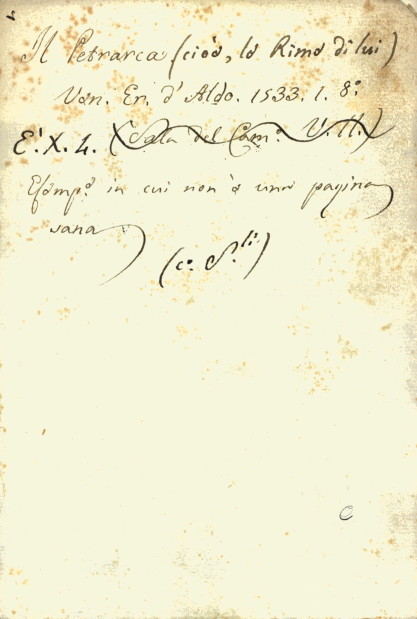 Il Petrarca (cioè, le Rime di lui)
Ven. Er. d'Aldo. 1533. 1. 8º
E.X.4. (Sala del Cam.º V.11.)
Esemp.º in cui non è una pagina
sana
(cº. S.li)
C